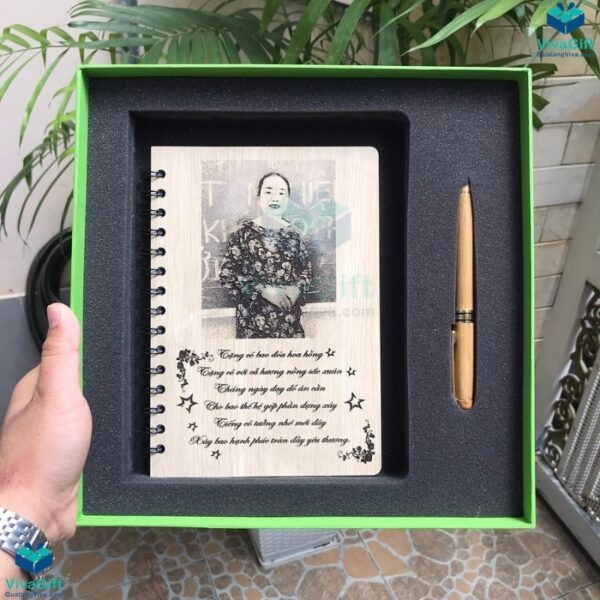 VivaGift
QuatangViva.com
Tặng cô bao đóa hoa hồng
Tặng cô với cả hương nồng sắc xuân
Tháng ngày dạy dỗ ân cần
Cho bao thế hệ góp phần dựng xây
Tiếng cô tưởng nhớ mới đây
Xây bao hạnh phúc tràn đầy yêu thương.
VivaGift
QuatangViva.com